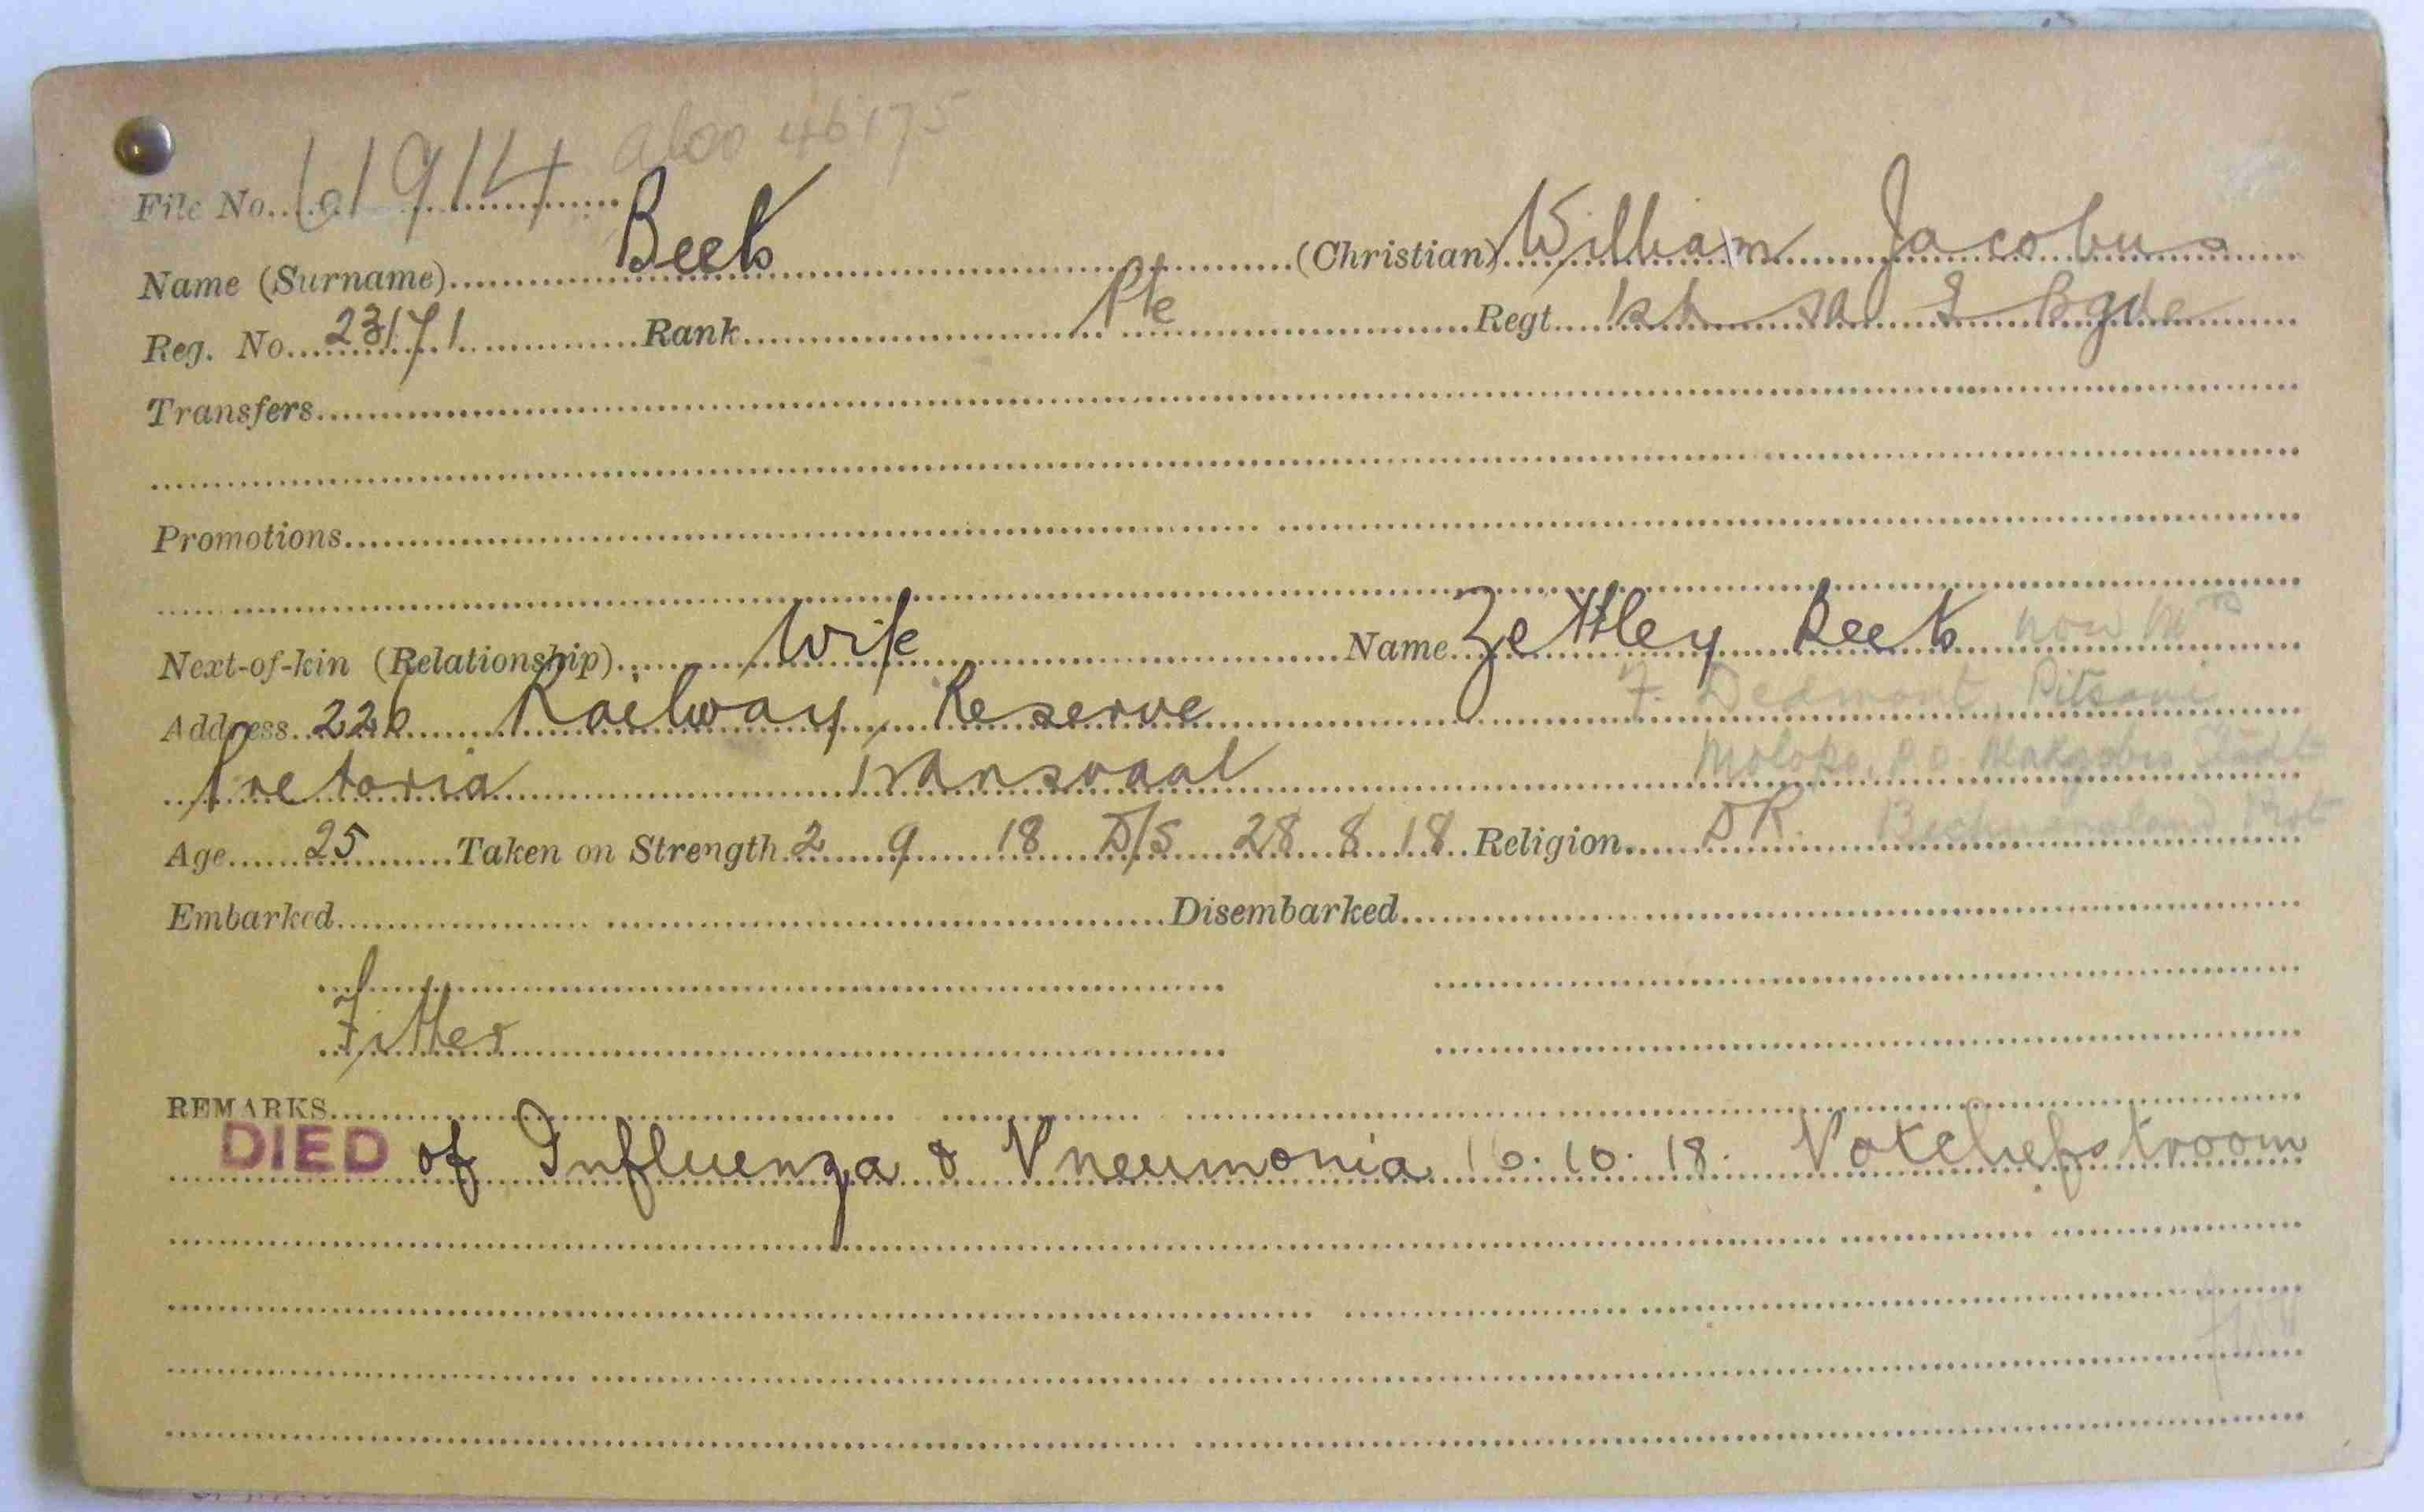 File No. 61914 also 46175
Name (Surname) Beets (Christian) William Jacobus
Reg. No. 23171 Rank Pte Regt. 1st SA I Bgde
Transfers
Promotions
Next-of-kin (Relationship) Wife Name Zettley Beets now Mrs
Address 226 Railway Reserve F. Dedmont, Pitsani
Pretoria Transvaal Moloko, P.O. Makgobis Stadt
Age 25 Taken on Strength 2 9 18 D/S 28 8 18 Religion DR. Bechuanaland Prot
Embarked Disembarked
Fitter
REMARKS
DIED of Influenza & Pneumonia 16.10.18. Potchefstroom